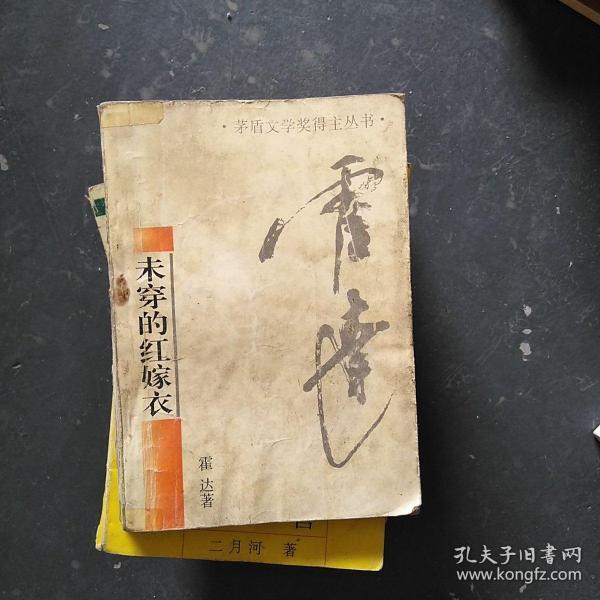 ·茅盾文学奖得主丛书·
霍達
未穿的红嫁衣
霍达著
二月河 著
孔夫子旧书网
www.kongfz.com